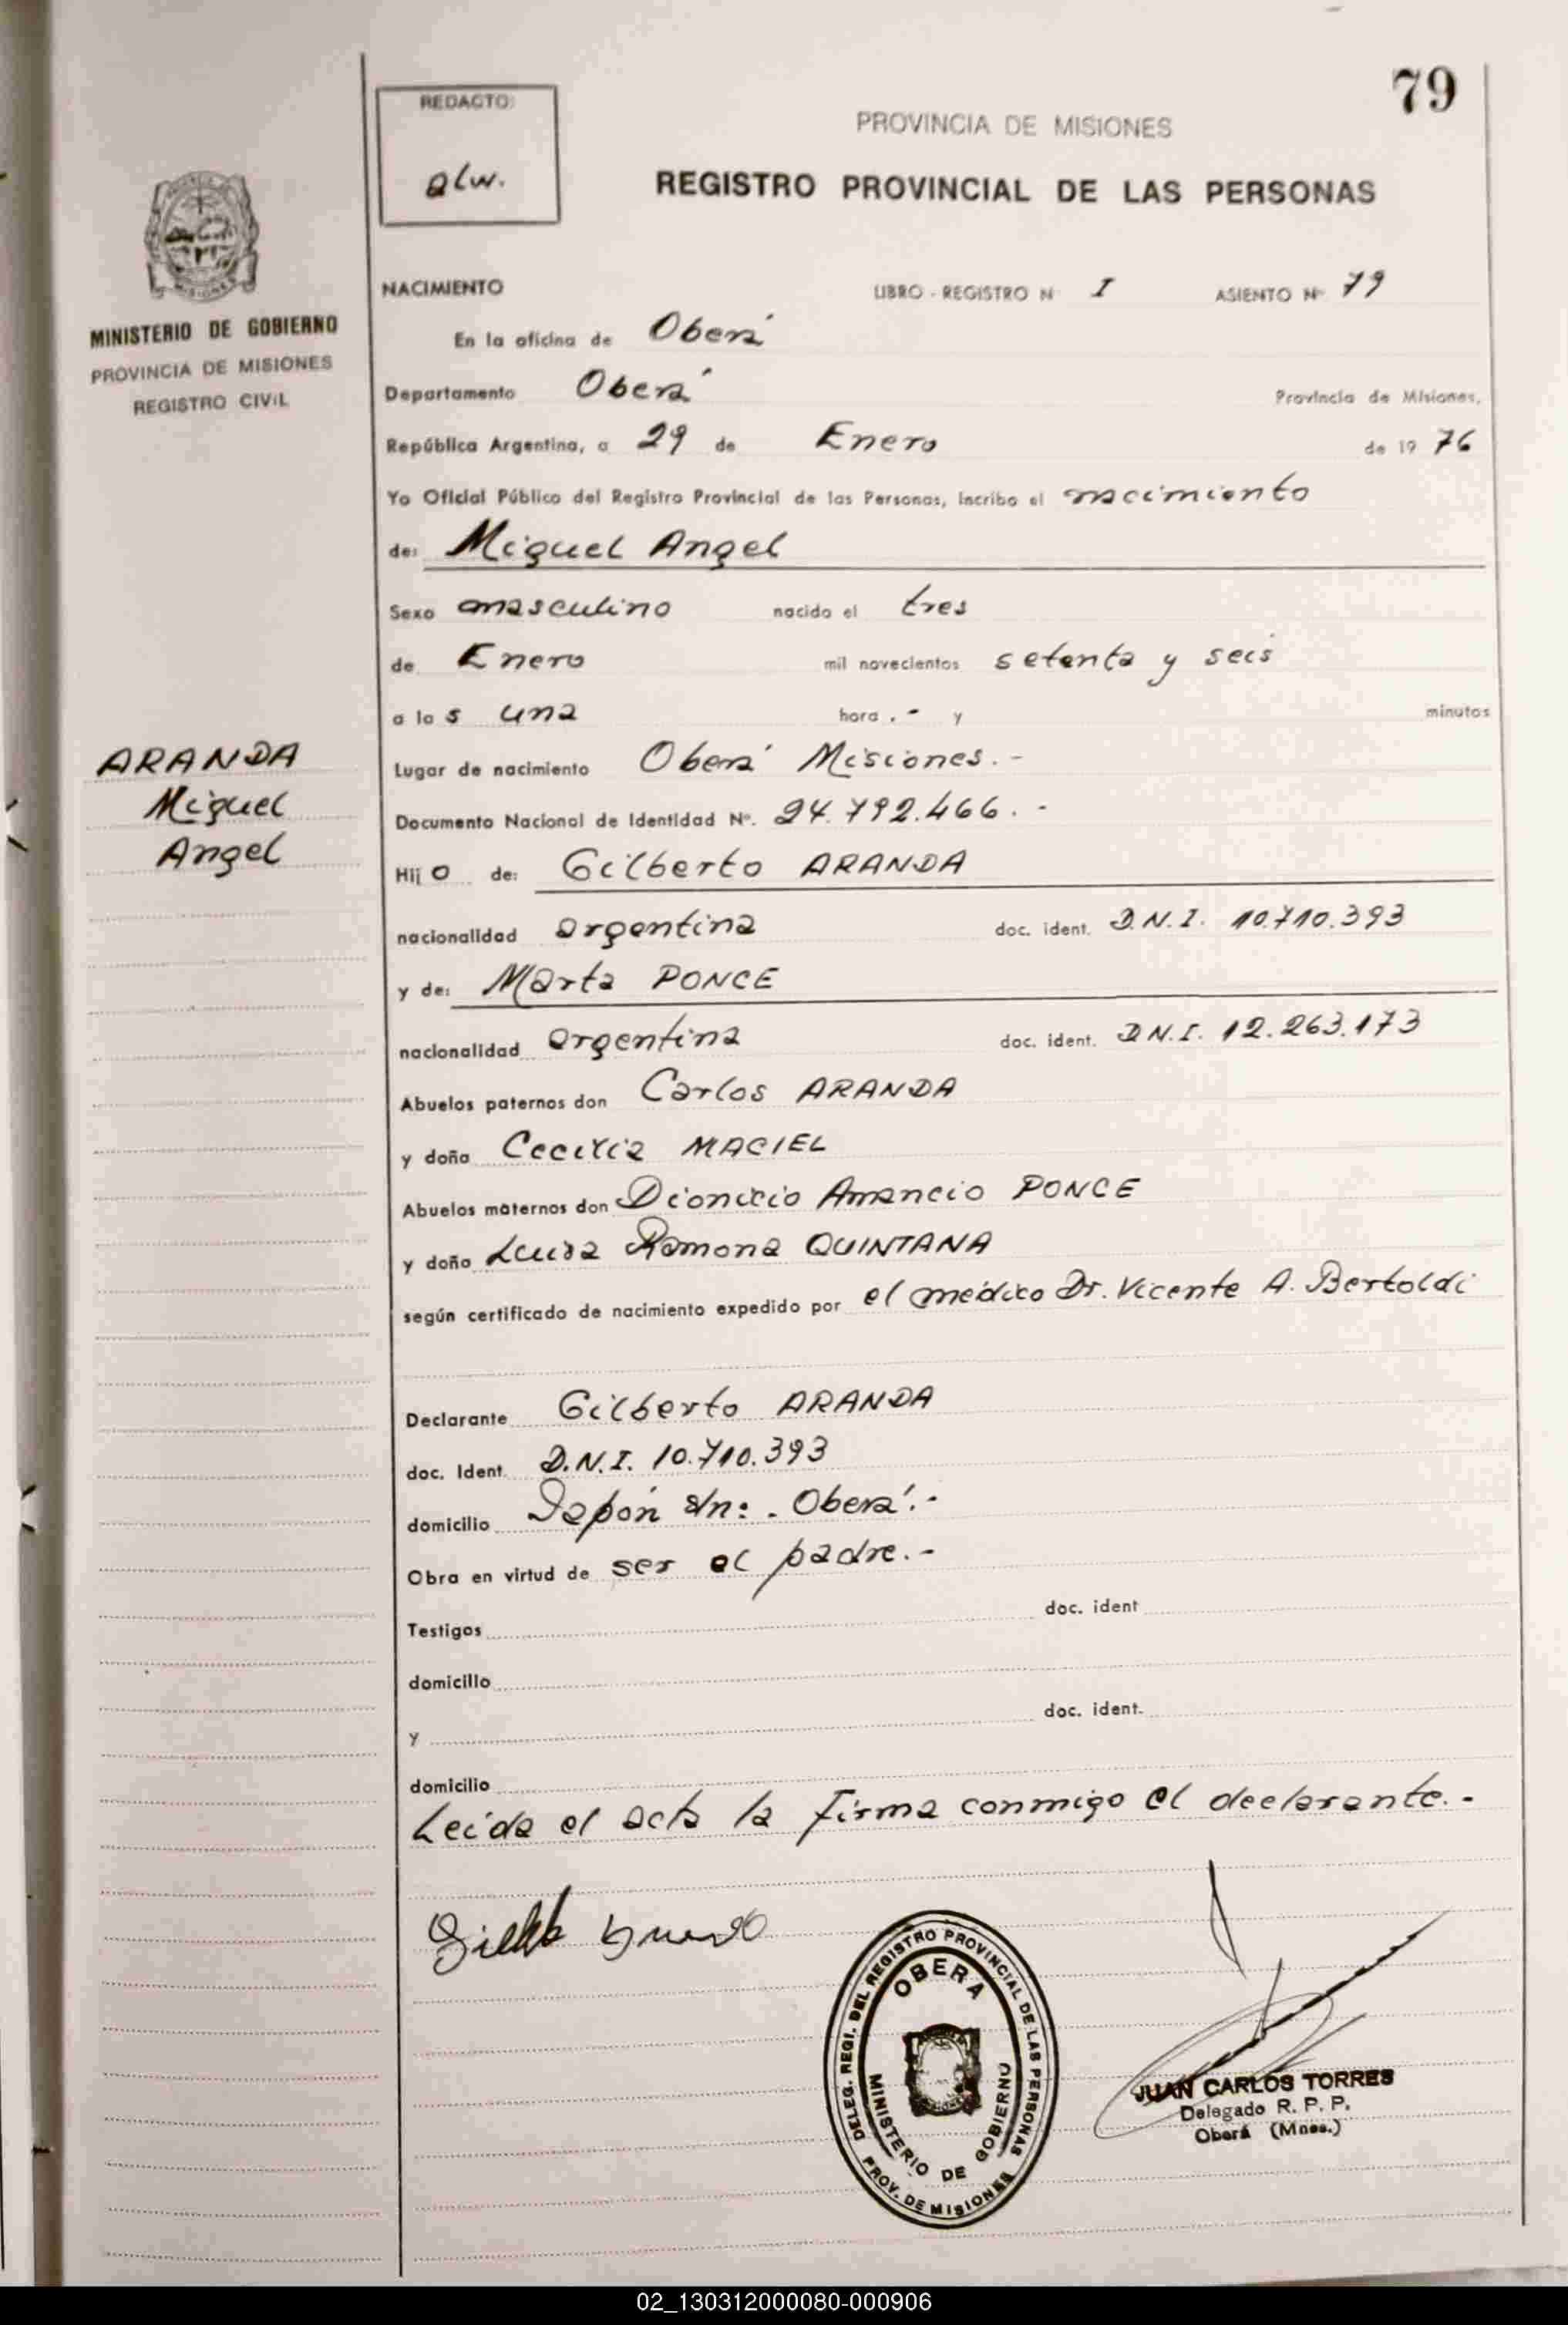 79
REDACTO:
alw.
PROVINCIA DE MISIONES
REGISTRO PROVINCIAL DE LAS PERSONAS
MINISTERIO DE GOBIERNO
PROVINCIA DE MISIONES
REGISTRO CIVIL
NACIMIENTO LIBRO - REGISTRO N I ASIENTO Nº 79
En la oficina de Oberá
Departamento Oberá Provincia de Misiones,
República Argentina, a 29 de Enero de 19 76
Yo Oficial Público del Registro Provincial de las Personas, incribo el nacimiento
de: Miguel Angel
Sexo masculino nacido el tres
de Enero mil novecientos setenta y seis
a las una hora .- y minutos
ARANDA
Miguel
Angel
Lugar de nacimiento Oberá Misiones.-
Documento Nacional de Identidad Nº. 24.792.466.-
Hijo de: Gilberto ARANDA
nacionalidad argentina doc. ident. D.N.I. 10.710.393
y de: Marta PONCE
nacionalidad argentina doc. ident. D.N.I. 12.263.173
Abuelos paternos don Carlos ARANDA
y doña Cecilia MACIEL
Abuelos maternos don Dionicio Amancio PONCE
y doña Luisa Ramona QUINTANA
según certificado de nacimiento expedido por el médico Dr. Vicente A. Bertoldi
Declarante Gilberto ARANDA
doc. Ident. D.N.I. 10.710.393
domicilio Japón s/n: . Oberá.-
Obra en virtud de ser el padre.-
Testigos doc. ident
domicilio
y doc. ident.
domicilio
Leida el acta la firma conmigo el declarante.-
DELEG. REGI. DEL REGISTRO PROVINCIAL DE LAS PERSONAS
OBERA
MINISTERIO DE GOBIERNO
PROV. DE MISIONES
JUAN CARLOS TORRES
Delegado R. P. P.
Oberá (Mnes.)
02_130312000080-000906